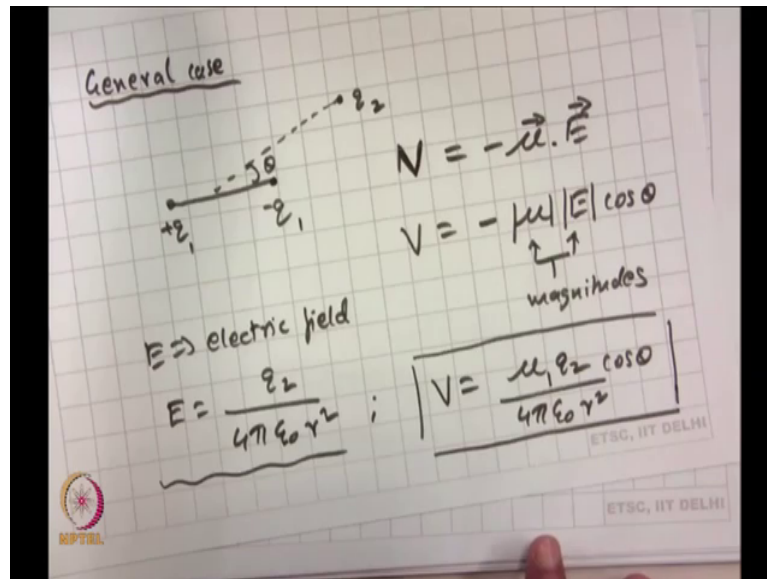 General case
q₂
θ
+q₁
-q₁
V = -μ⃗ . E⃗
V = - |μ| |E| cos θ
magnitudes
E ⇒ electric field
E = q₂ / 4π ε₀ r² ; V = μ₁ q₂ cos θ / 4π ε₀ r²
ETSC, IIT DELHI
ETSC, IIT DELHI
NPTEL